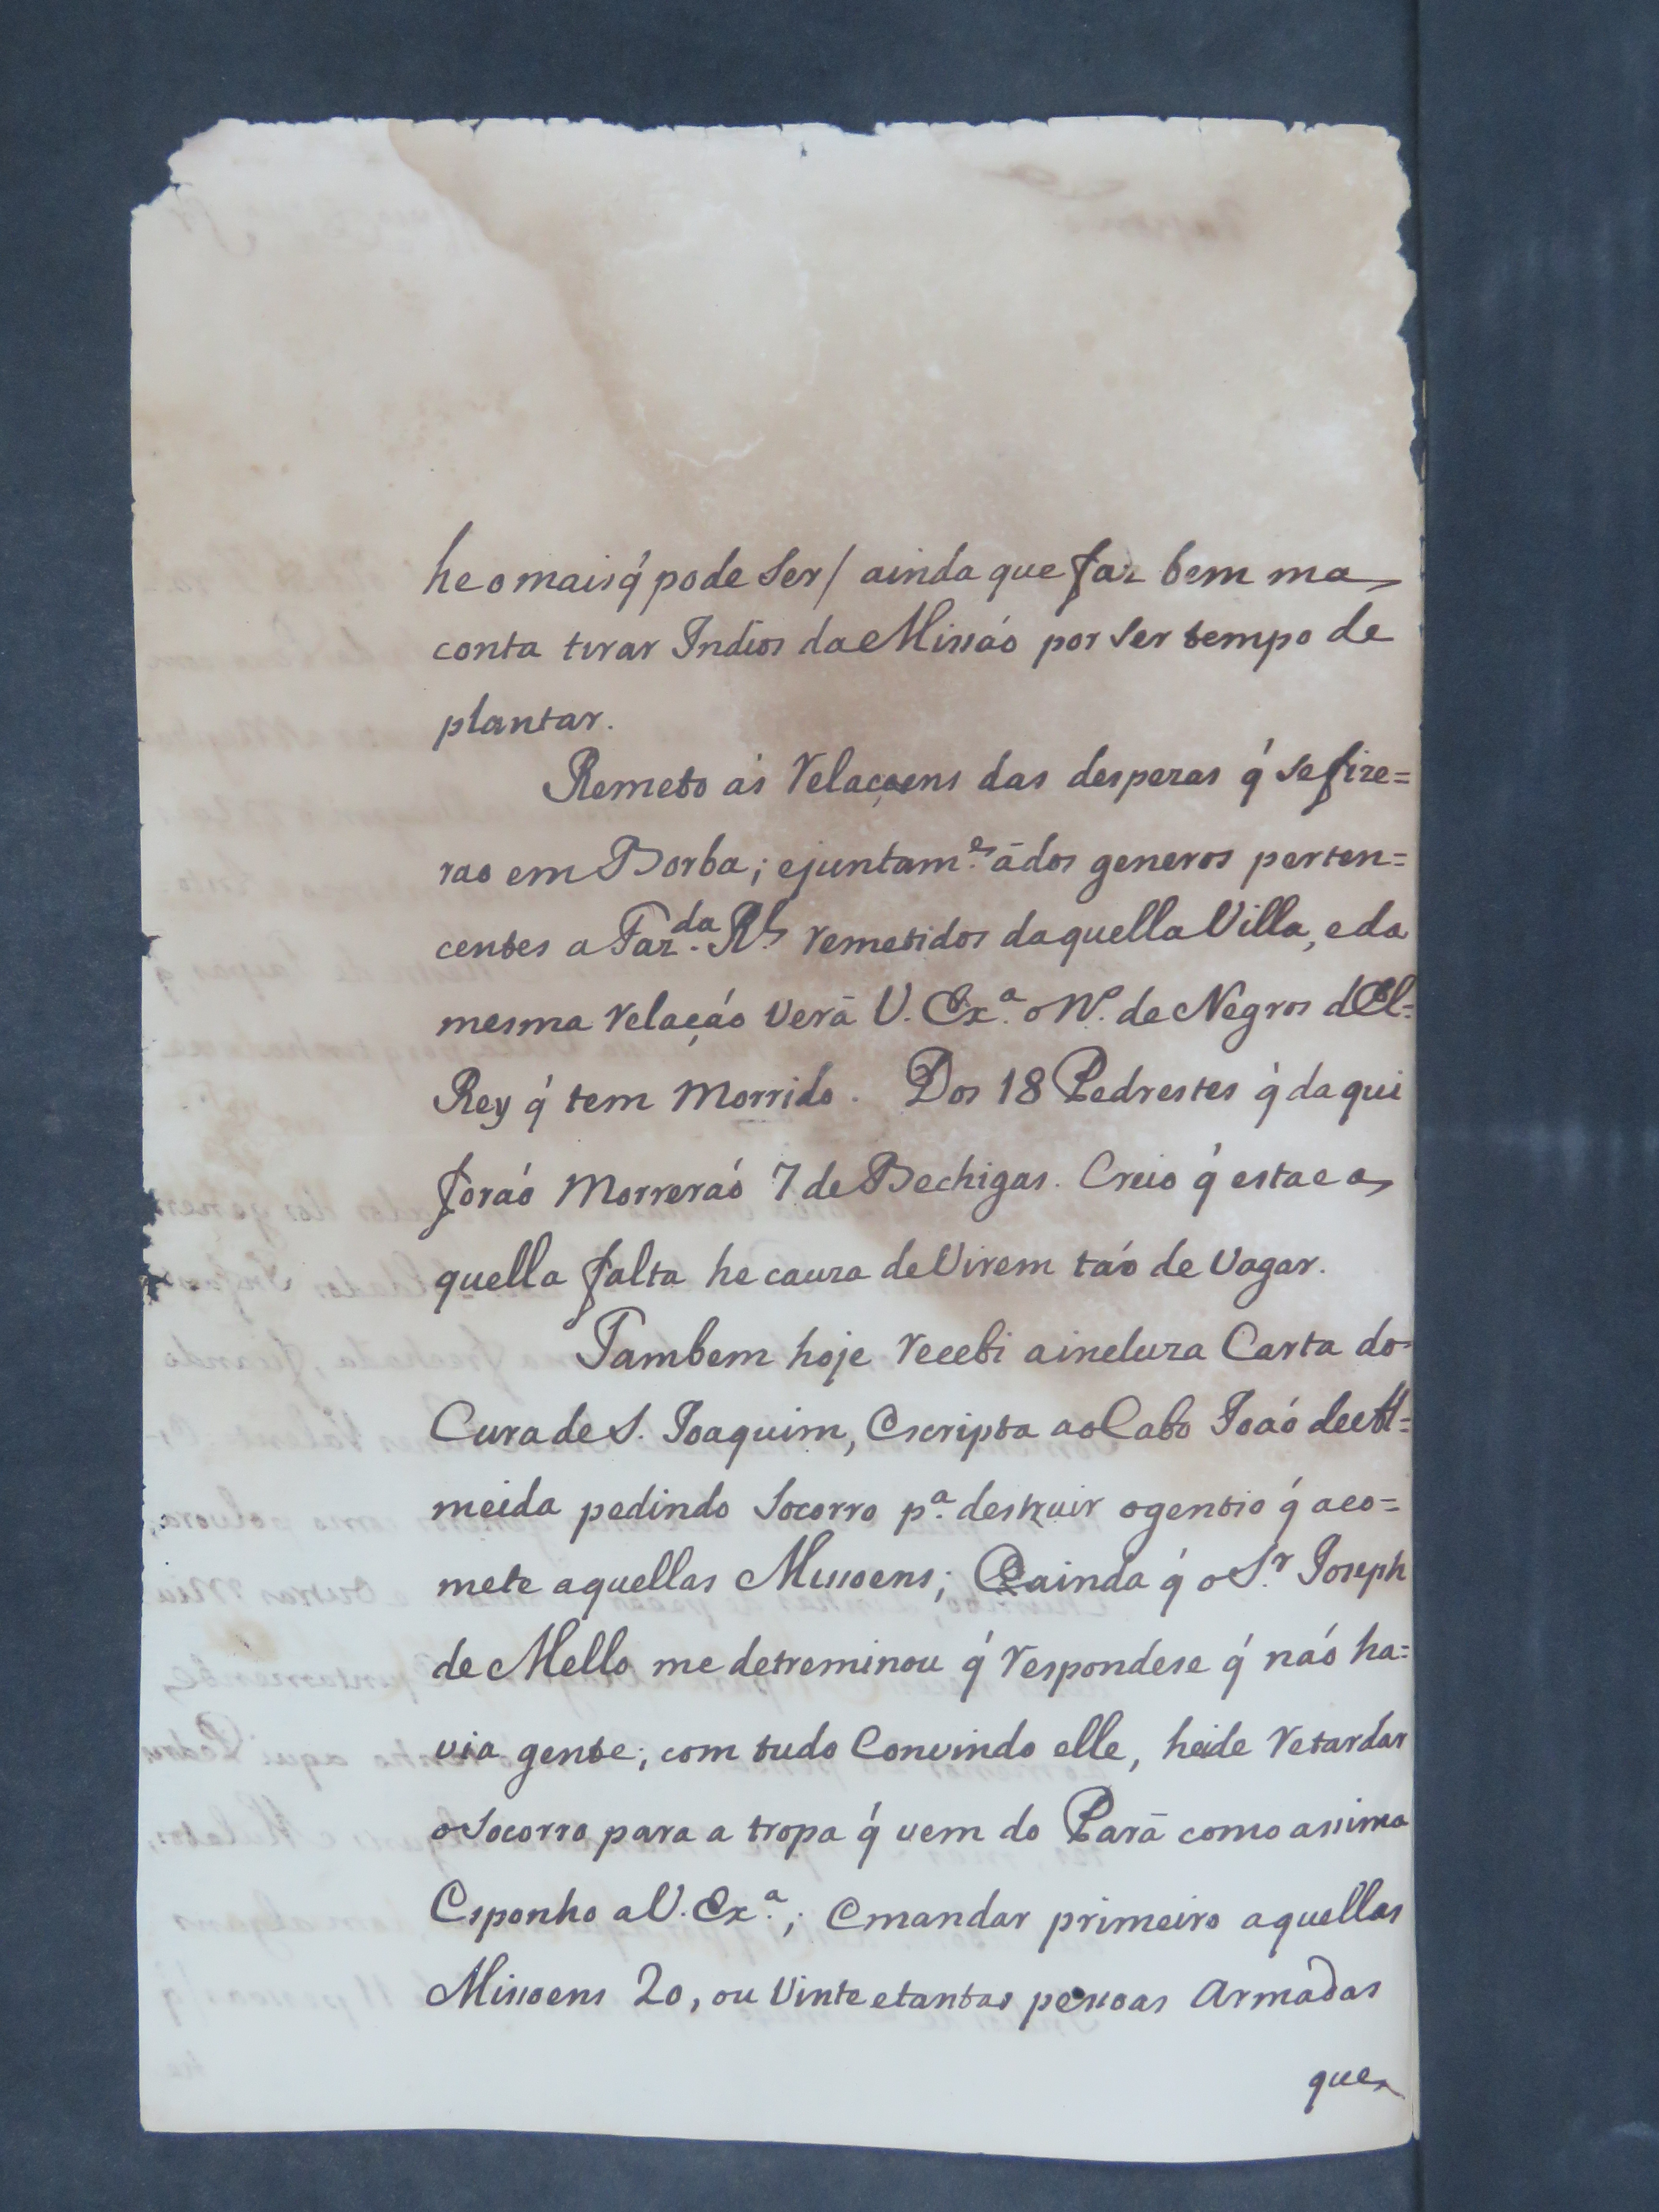 he o mais q́ pode ser/ ainda que faz bem ma
conta tirar Indios da Missáo por ser tempo de
plantar.
Remeto ás relaçoens das despezas q́ se fize=
rao em Borba; e juntam.es ādos generos perten=
centes a Faz.da R.l remetidos daquella Villa, e da
mesma relaçáo verā V. Ex.a o N.o de Negros d'El=
Rey q́ tem morrido. Dos 18 Pedrestes q́ daqui
foráo morreráo 7 de Bechigas. Creio q́ esta e a
quella falta he cauza de virem táo de vagar.
Tambem hoje recebi a incluza Carta do
Cura de S. Joaquim, escripta ao Cabo Joáo de Al=
meida pedindo socorro p.a destruir o gentio q́ aco=
mete aquellas Missoens; E ainda q́ o S.r Joseph
de Mello me detreminou q́ respondese q́ náo ha=
via gente; com tudo convindo elle, heide retardar
o socorro para a tropa q́ vem do Parā como assima
Esponho a V. Ex.a; e mandar primeiro aquellas
Missoens 20, ou vinte e tantas pessoas armadas
que